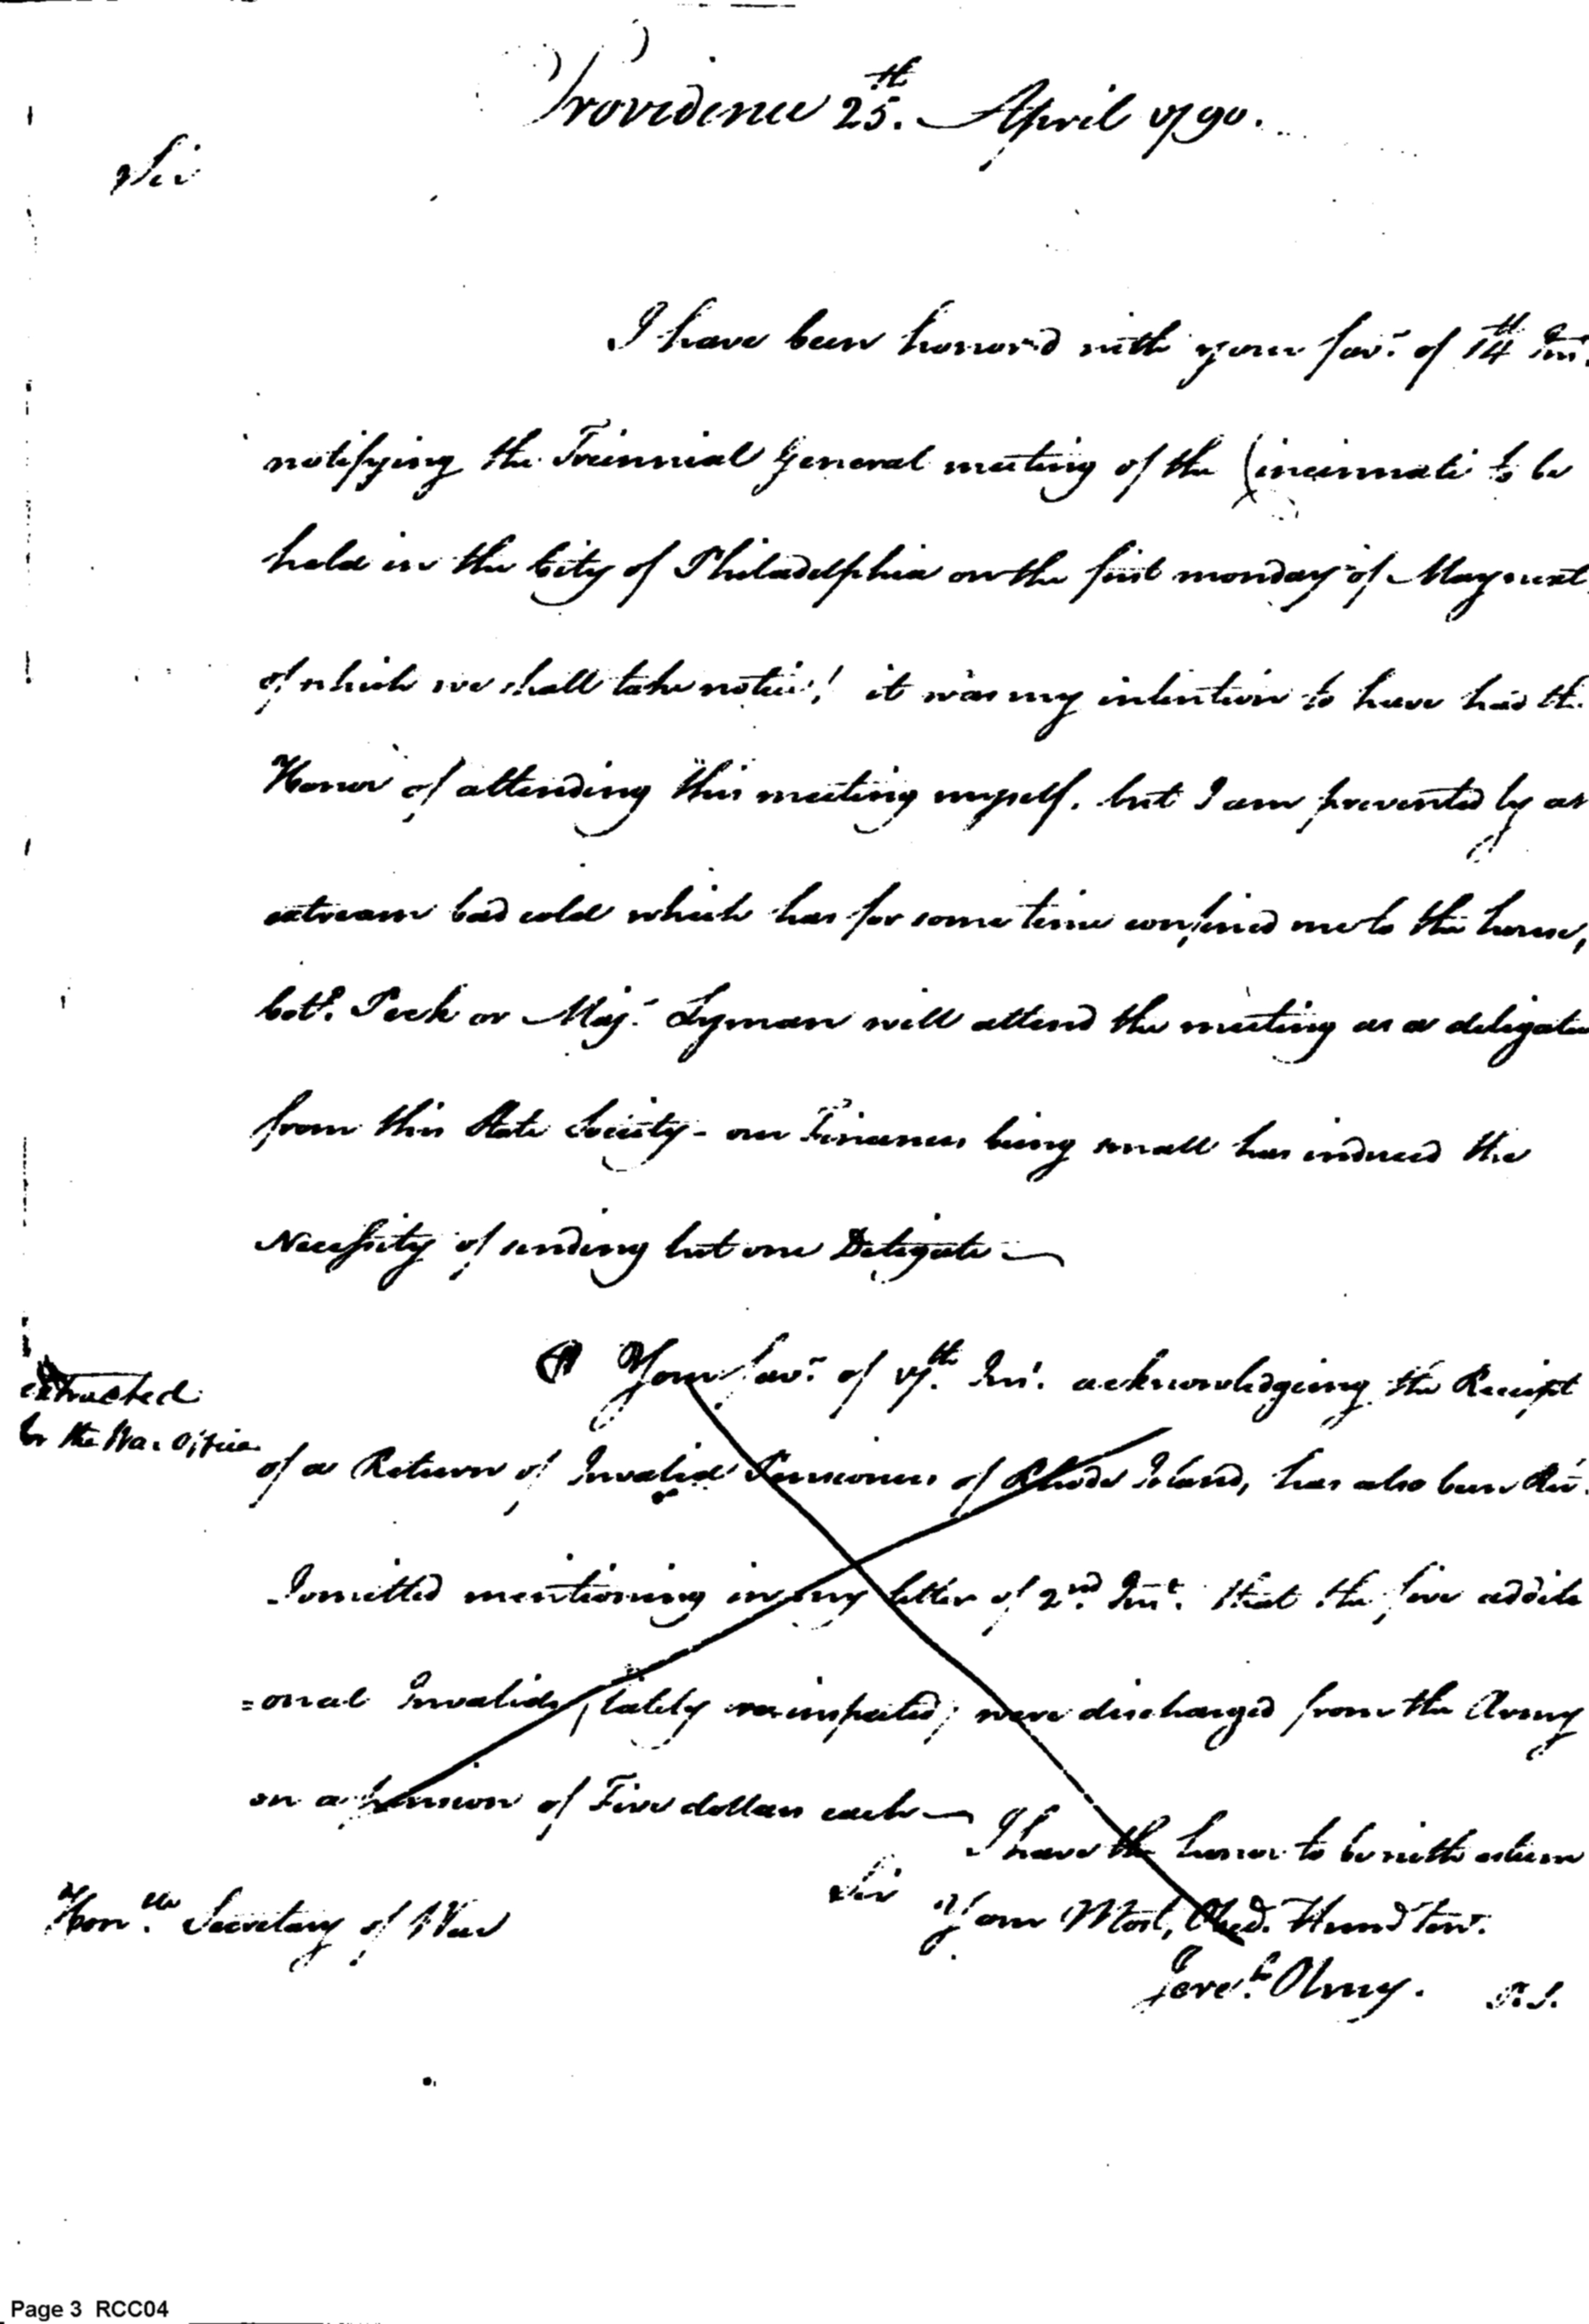 Providence 25.th April 1790.
Sir
I have been honor'd with your fav.r of 14th Ins.
notifying the Triennial General meeting of the Cincinnati to be
held in the City of Philadelphia on the first monday of May next
of which we shall take notice! it was my intention to have had the
Honor of attending this meeting myself. but I am prevented by an
extream bad cold which has for some time confined me to the house,
Col.o Peck or Maj.r Lyman will attend the meeting as a deligate
from this State Society - our Finances being small has induced the
Necessity of sending but one Deligate —
Your fav.r of 17.th Ins.t acknowledgeing the Receipt
extracted
for the War Office
of a Return of Invalid Pensioners of Rhode Island, has also been Rec.
I omitted mentioning in my letter of 2.nd Ins.t that the five additi
=onal Invalids, lately reinspected, were discharged from the Army
on a pension of Five dollars each —
I have the honor to be with esteem
Sir
Your Most, Obed. Hum.d Serv.
Hon.ble Secretary of War
Jere.h Olney. P.S.
Page 3 RCC04